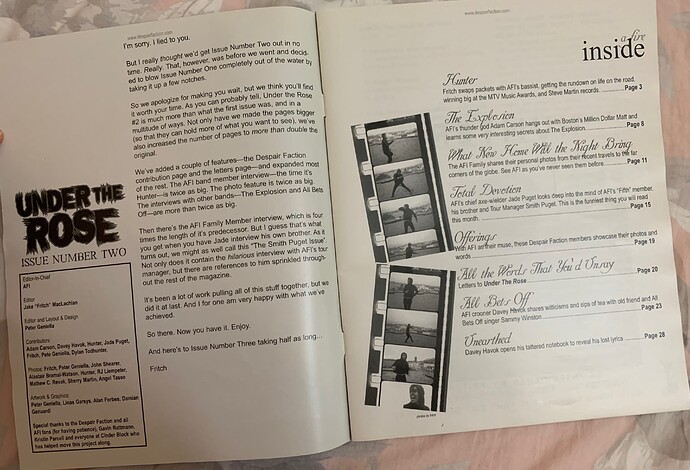 www.despairfaction.com
I'm sorry. I lied to you.
But I really thought we'd get Issue Number Two out in no
time. Really. That, however, was before we went and decid-
ed to blow Issue Number One completely out of the water by
taking it up a few notches.
So we apologize for making you wait, but we think you'll find
it worth your time. As you can probably tell, Under the Rose
#2 is much more than what the first issue was, and in a
multitude of ways. Not only have we made the pages bigger
(so that they can hold more of what you want to see), we've
also increased the number of pages to more than double the
original.
We've added a couple of features—the Despair Faction
contribution page and the letters page—and expanded most
of the rest. The AFI band member interview—the time it's
Hunter—is twice as big. The photo feature is twice as big.
The interviews with other bands—The Explosion and All Bets
Off—are more than twice as big.
Then there's the AFI Family Member interview, which is four
times the length of it's predecessor. But I guess that's what
you get when you have Jade interview his own brother. As it
turns out, we might as well call this "The Smith Puget Issue".
Not only does it contain the hilarious interview with AFI's tour
manager, but there are references to him sprinkled through-
out the rest of the magazine.
It's been a lot of work pulling all of this stuff together, but we
did it at last. And I for one am very happy with what we've
achieved.
So there. Now you have it. Enjoy.
And here's to Issue Number Three taking half as long...
Fritch
UNDER THE
ROSE
ISSUE NUMBER TWO
Editor-in-Chief
AFI
Editor
Jake "Fritch" MacLachlan
Editor and Layout & Design
Peter Geniella
Contributors
Adam Carson, Davey Havok, Hunter, Jade Puget,
Fritch, Pete Geniella, Dylan Todhunter.
Photos: Fritch, Peter Geniella, John Shearer,
Alastair Bramal-Watson, Hunter, RJ Liempeter,
Mathew C. Revak, Sherry Martin, Angel Tasso
Artwork & Graphics
Peter Geniella, Linas Garsys, Alan Forbes, Damian
Genuardi
Special thanks to the Despair Faction and all
AFI fans (for having patience), Gavin Rattmann,
Kristin Parcell and everyone at Cinder Block who
has helped move this project along.
www.despairfaction.com
a fire
inside
Hunter
Fritch swaps packets with AFI's bassist, getting the rundown on life on the road,
winning big at the MTV Music Awards, and Steve Martin records. Page 3
The Explosion
AFI's thunder god Adam Carson hangs out with Boston's Million Dollar Matt and
learns some very interesting secrets about The Explosion. Page 8
What New Home Will the Night Bring
The AFI Family shares their personal photos from their recent travels to the far
corners of the globe. See AFI as you've never seen them before. Page 11
Total Devotion
AFI's chief axe-wielder Jade Puget looks deep into the mind of AFI's "Fifth" member,
his brother and Tour Manager Smith Puget. This is the funniest thing you will read
this month. Page 15
Offerings
With AFI as their muse, these Despair Faction members showcase their photos and
words Page 19
All the Words That You'd Unsay
Letters to Under The Rose Page 20
All Bets Off
AFI crooner Davey Havok shares witticisms and sips of tea with old friend and All
Bets Off singer Sammy Winston Page 23
Unearthed
Davey Havok opens his tattered notebook to reveal his lost lyrics Page 28